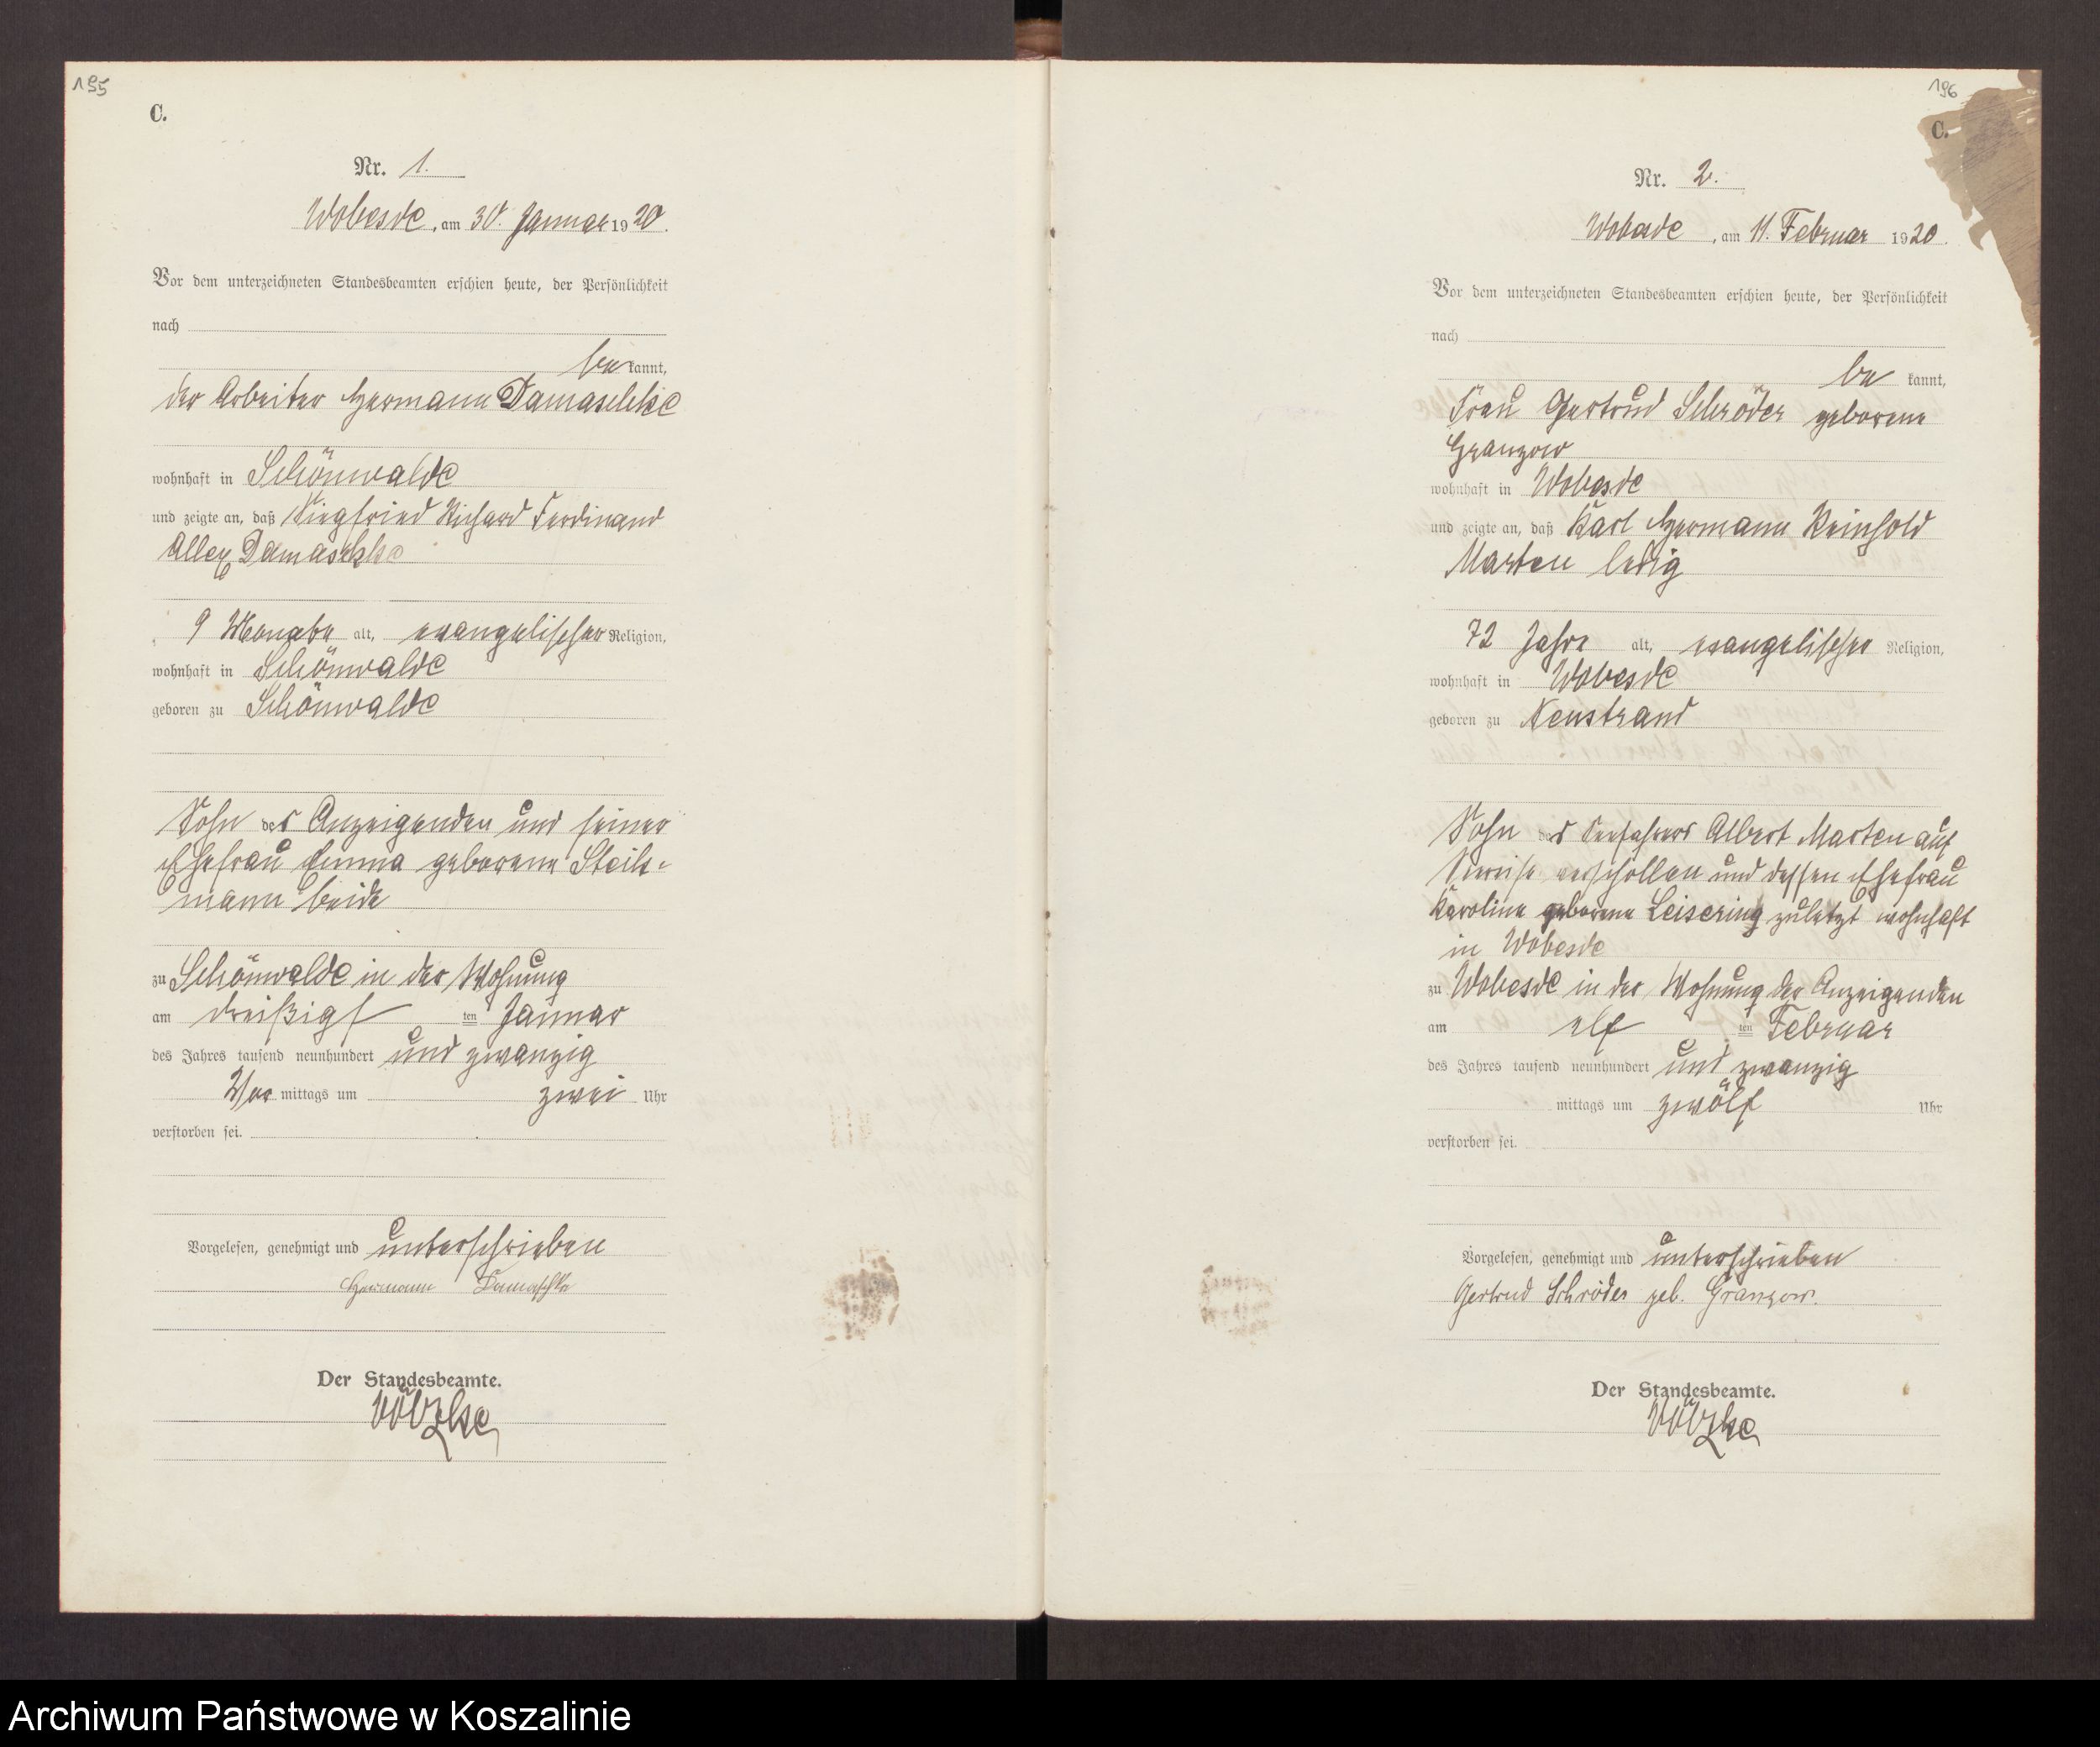 195
C.
Nr. 1.
Wobesde, am 30. Januar 1920.
Vor dem unterzeichneten Standesbeamten erschien heute, der Persönlichkeit
nach
bekannt,
der Arbeiter Hermann Damaschke
wohnhaft in Schönwalde
und zeigte an, daß Siegfried Richard Ferdinand
Allex Damaschke
9 Monate alt, evangelischer Religion,
wohnhaft in Schönwalde
geboren zu Schönwalde
Sohn des Anzeigenden und seiner
Ehefrau Emma geborene Steils-
mann beide
zu Schönwalde in der Wohnung
am dreißigsten Januar
des Jahres tausend neunhundert und zwanzig
Vor mittags um zwei Uhr
verstorben sei.
Vorgelesen, genehmigt und unterschrieben
Hermann Damaschke
Der Standesbeamte.
196
C.
Nr. 2.
Wobesde, am 11. Februar 1920.
Vor dem unterzeichneten Standesbeamten erschien heute, der Persönlichkeit
nach
bekannt,
Frau Gertrud Schröder geborene
Granzow
wohnhaft in Wobesde
und zeigte an, daß Karl Hermann Reinhold
Marten ledig
72 Jahre alt, evangelischer Religion,
wohnhaft in Wobesde
geboren zu Neustrand
Sohn des Seefahrers Albert Marten auf
Seereise verschollen und dessen Ehefrau
Karoline geborene Leisering zuletzt wohnhaft
in Wobesde
zu Wobesde in der Wohnung der Anzeigenden
am elften Februar
des Jahres tausend neunhundert und zwanzig
mittags um zwölf Uhr
verstorben sei.
Vorgelesen, genehmigt und unterschrieben
Gertrud Schröder geb. Granzow.
Der Standesbeamte.
Archiwum Państwowe w Koszalinie